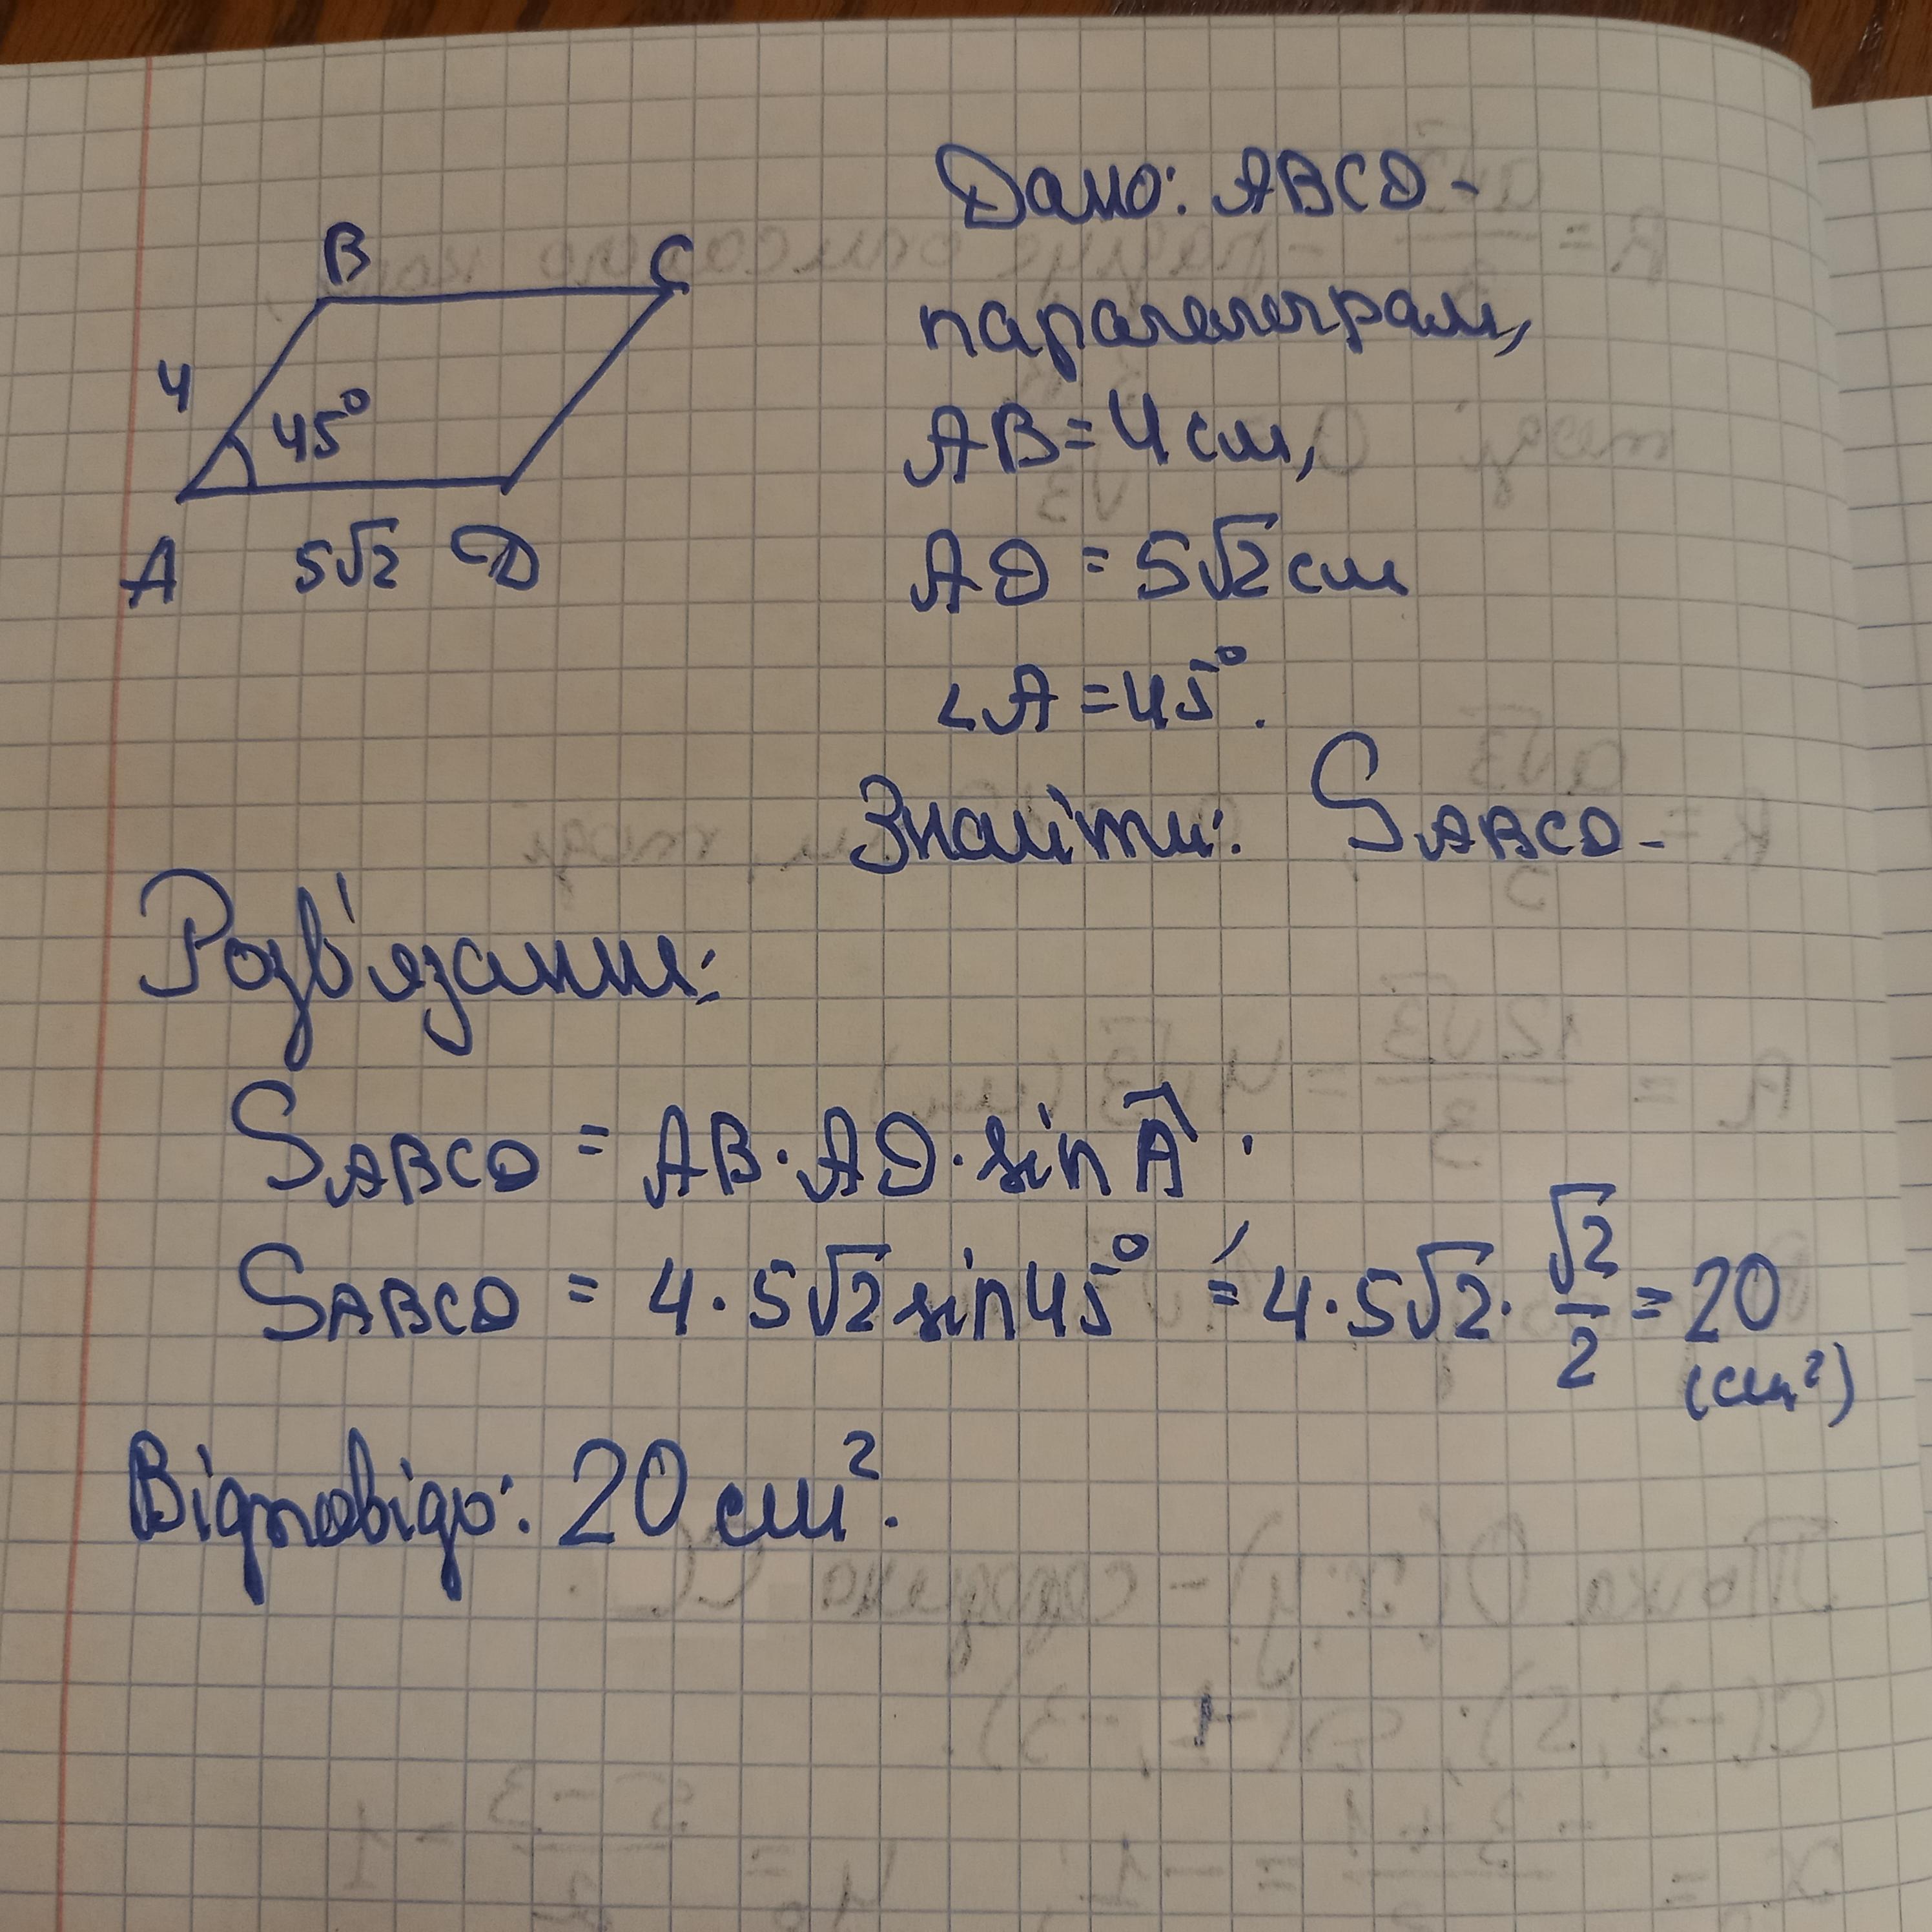 B C
4 45°
A 5√2 D
Дано: ABCD -
паралелограм,
AB = 4 см,
AD = 5√2 см
∠A = 45°.
Знайти: S ABCD -
Розв'язання:
S ABCD = AB · AD · sin A .
S ABCD = 4 · 5√2 sin 45° = 4 · 5√2 · √2/2 = 20
(см²)
Відповідь: 20 см².